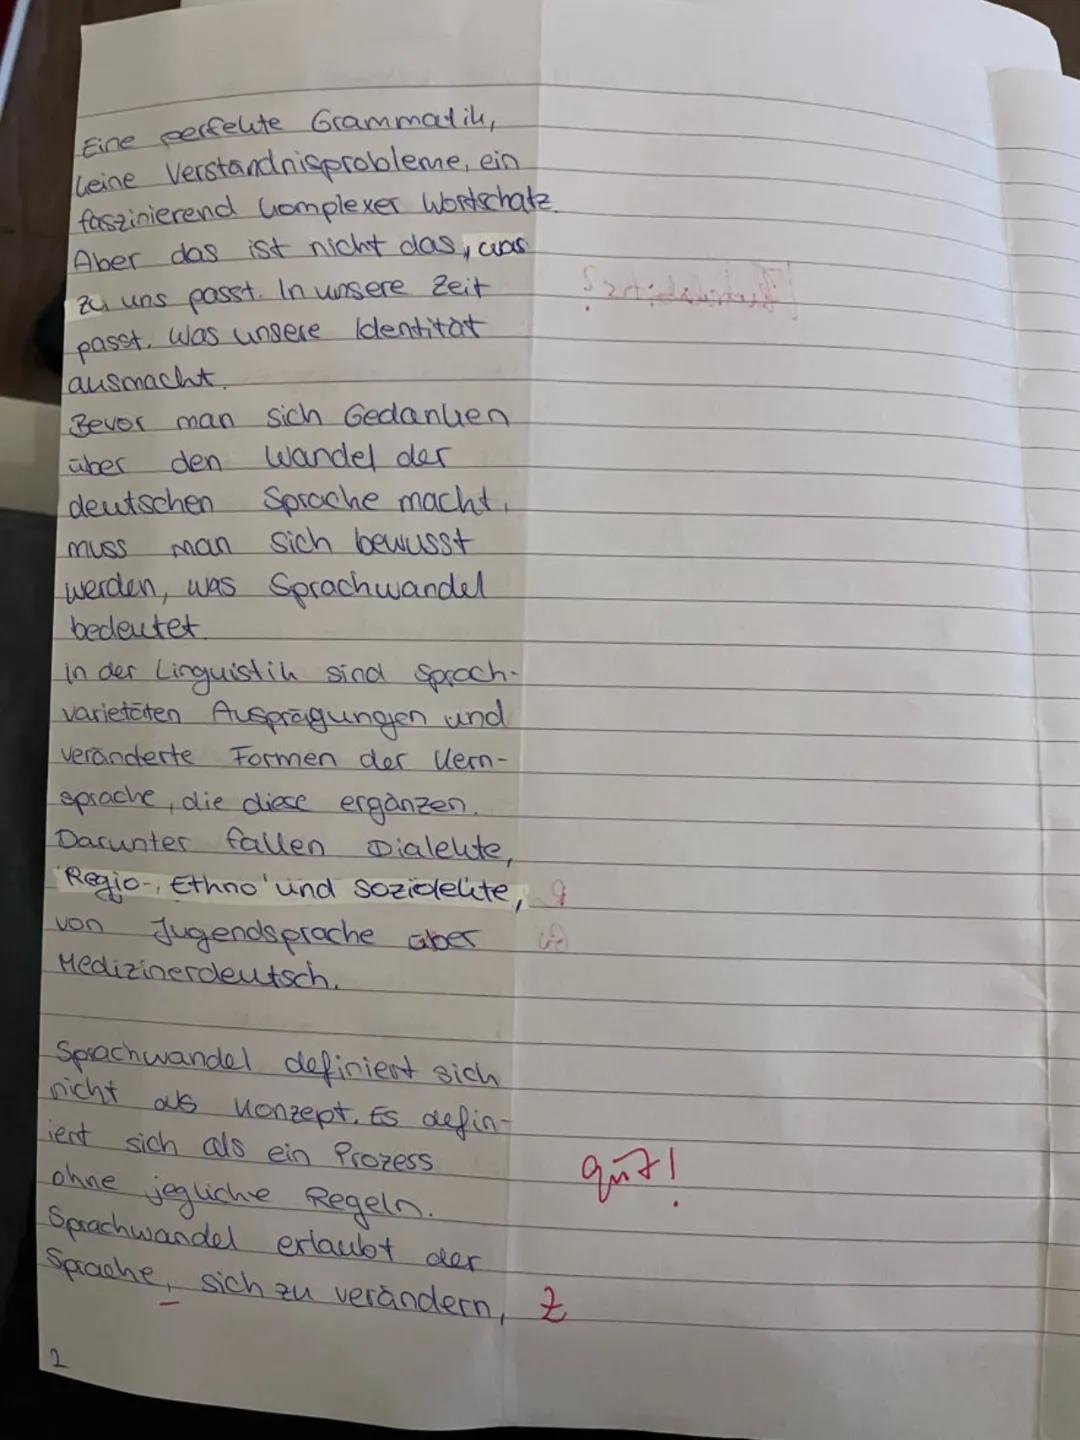 Eine perfekte Grammatik,
keine Verständnisprobleme, ein
faszinierend komplexer Wortschatz.
Aber das ist nicht das, was
zu uns passt. In unsere Zeit
passt. Was unsere Identität
ausmacht.
Bevor man sich Gedanken
über den Wandel der
deutschen Sprache macht,
muss man sich bewusst
werden, was Sprachwandel
bedeutet.
In der Linguistik sind Sprach-
varietäten Ausprägungen und
veränderte Formen der Kern-
sprache, die diese ergänzen.
Darunter fallen Dialekte,
Regio-, Ethno- und Soziolekte,
von Jugendsprache über
Medizinerdeutsch.
Sprachwandel definiert sich
nicht als Konzept. Es defin-
iert sich als ein Prozess
ohne jegliche Regeln.
gut!
Sprachwandel erlaubt der
Sprache, sich zu verändern, Z
2